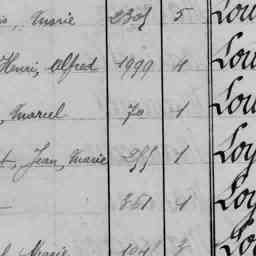 Marie 2305 5 Lou
Henri, Alfred 1999 4 Lou
, Marcel 70 1 Lou
t, Jean, Marie 255 1 Loy
— 861 1 Loy
Marie